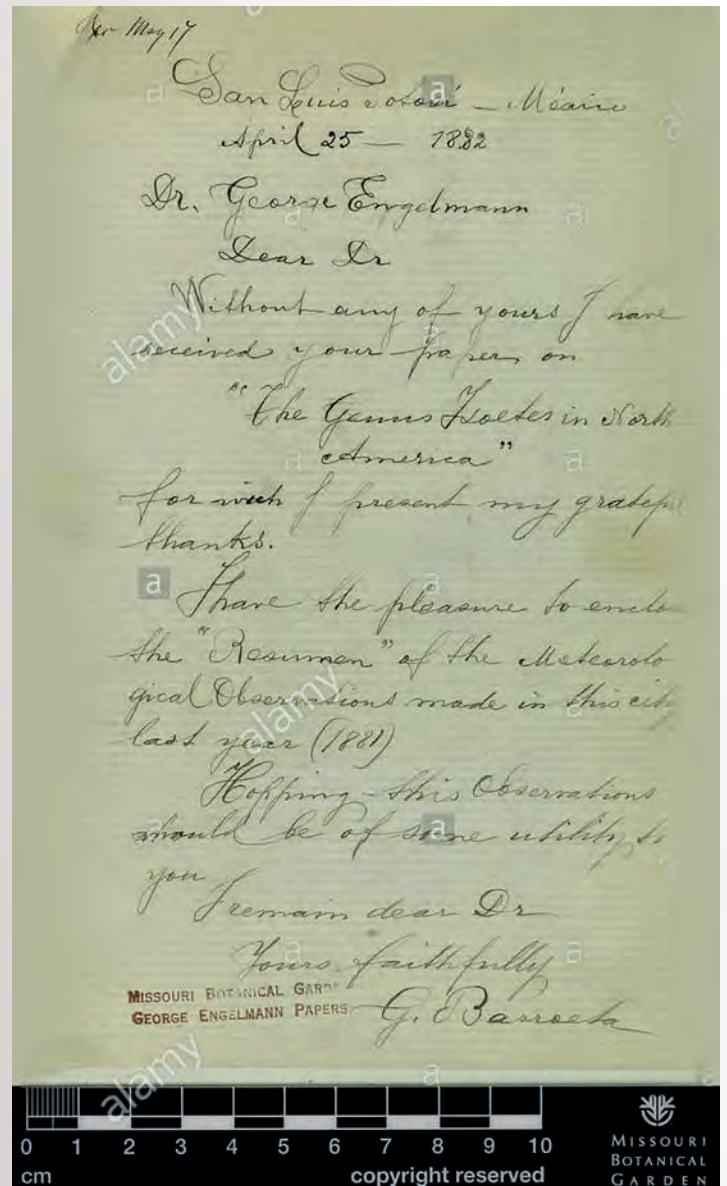 Rec May 17
San Luis Potosí – México
April 25 — 1882
Dr. George Engelmann
Dear Dr
Without any of yours I have
received your paper on
"The Genus Isoetes in North
America"
for wich I present my gratefu
thanks.
I have the pleasure to enclo
the "Resumen" of the Meteorolo
gical Observations made in this city
last year (1881)
Hopping this Observations
should be of some utility to
you
I remain dear Dr
Yours faithfully
G. Barroeta
MISSOURI BOTANICAL GARDE
GEORGE ENGELMANN PAPERS
0 1 2 3 4 5 6 7 8 9 10
cm copyright reserved
MISSOURI
BOTANICAL
GARDEN
alamy
alamy
alamy